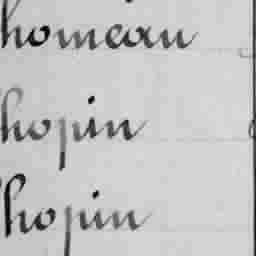 homeau
hopin
hopin